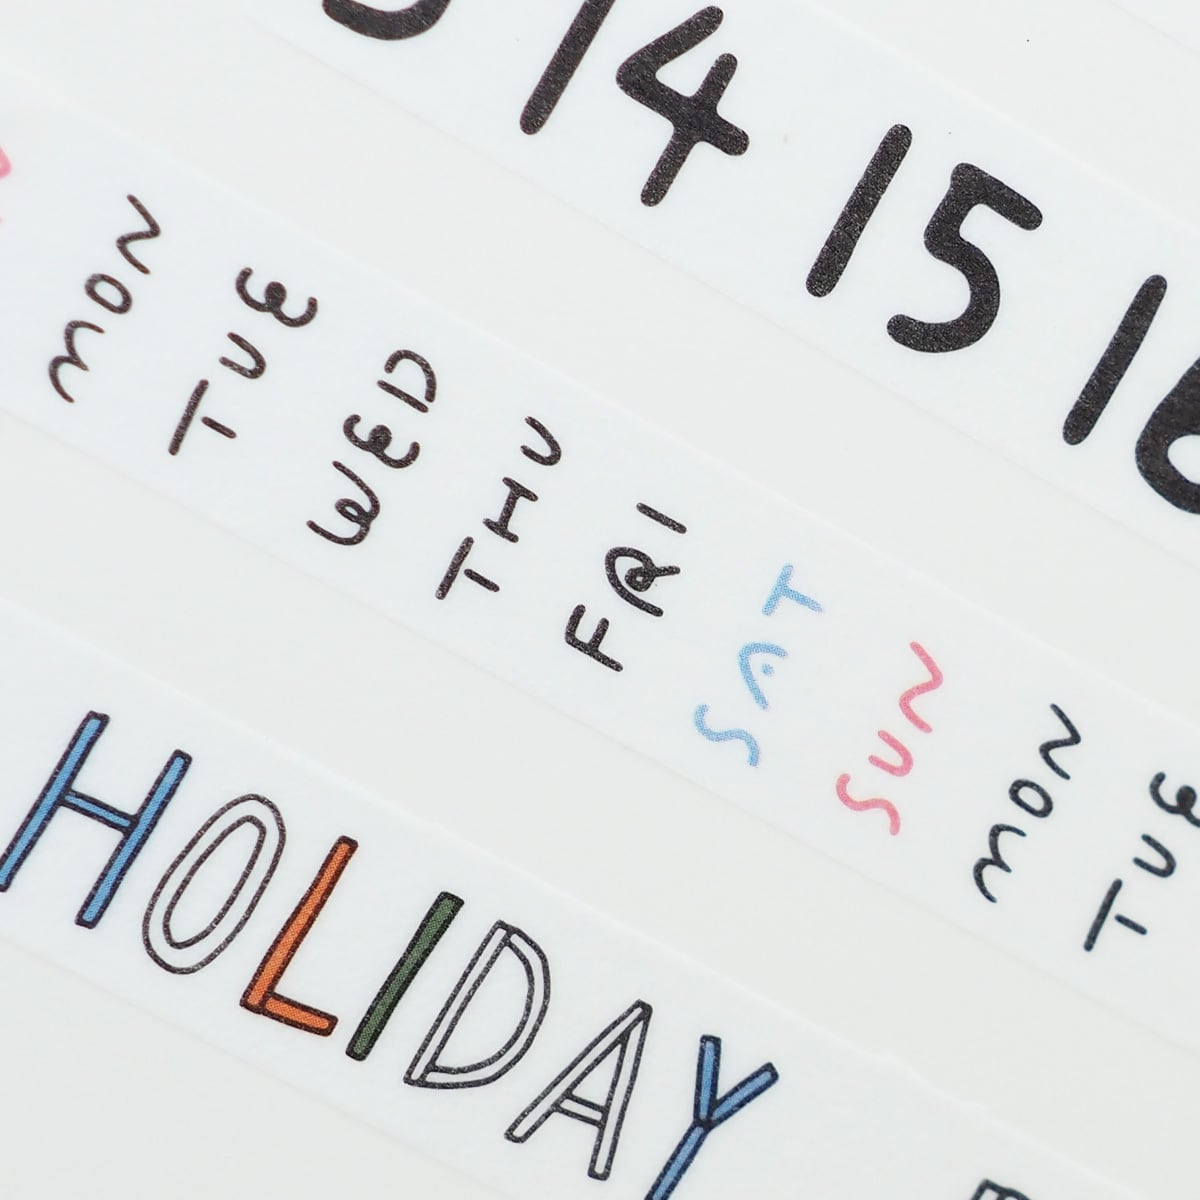 14 15 16
MON TUE WED THU FRI SAT SUN MON TUE
HOLIDAY